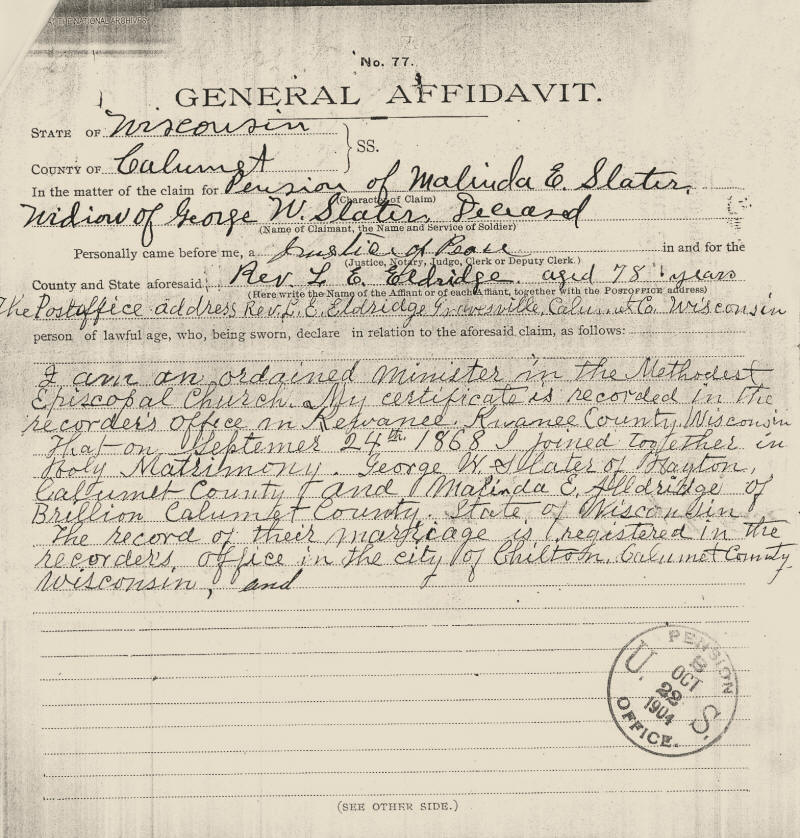 THE NATIONAL ARCHIVES
No. 77.
GENERAL AFFIDAVIT.
STATE OF Wisconsin
COUNTY OF Calumet } SS.
In the matter of the claim for Pension of Malinda E. Slater,
(Character of Claim)
Widiow of George W. Slater, Deceased
(Name of Claimant, the Name and Service of Soldier)
Personally came before me, a Justice of Peace in and for the
(Justice, Notary, Judge, Clerk or Deputy Clerk.)
County and State aforesaid: Rev. L. E. Eldridge aged 78 years
(Here write the Name of the Affiant or of each Affiant, together with the POSTOFFICE address)
The Postoffice address Rev. L. E. Eldridge Gravesville, Calumet Co. Wisconsin
person of lawful age, who, being sworn, declare in relation to the aforesaid claim, as follows:
I am an ordained minister in the Methodest
Episcopal Church. My certificate is recorded in the
recorder's office in Kewanee, Kwanee County, Wisconsin
That on Septemer 24th 1868 I joined together in
Holy Matrimony. George W. Slater of Hayton,
Calumet County and Malinda E. Alldridge of
Brillion Calumet County. State of Wisconsin
The record of their marriage is registered in the
recorder's office in the city of Chilton, Calumet County
Wisconsin, and
U. S. PENSION OFFICE.
OCT 22 1904
(SEE OTHER SIDE.)